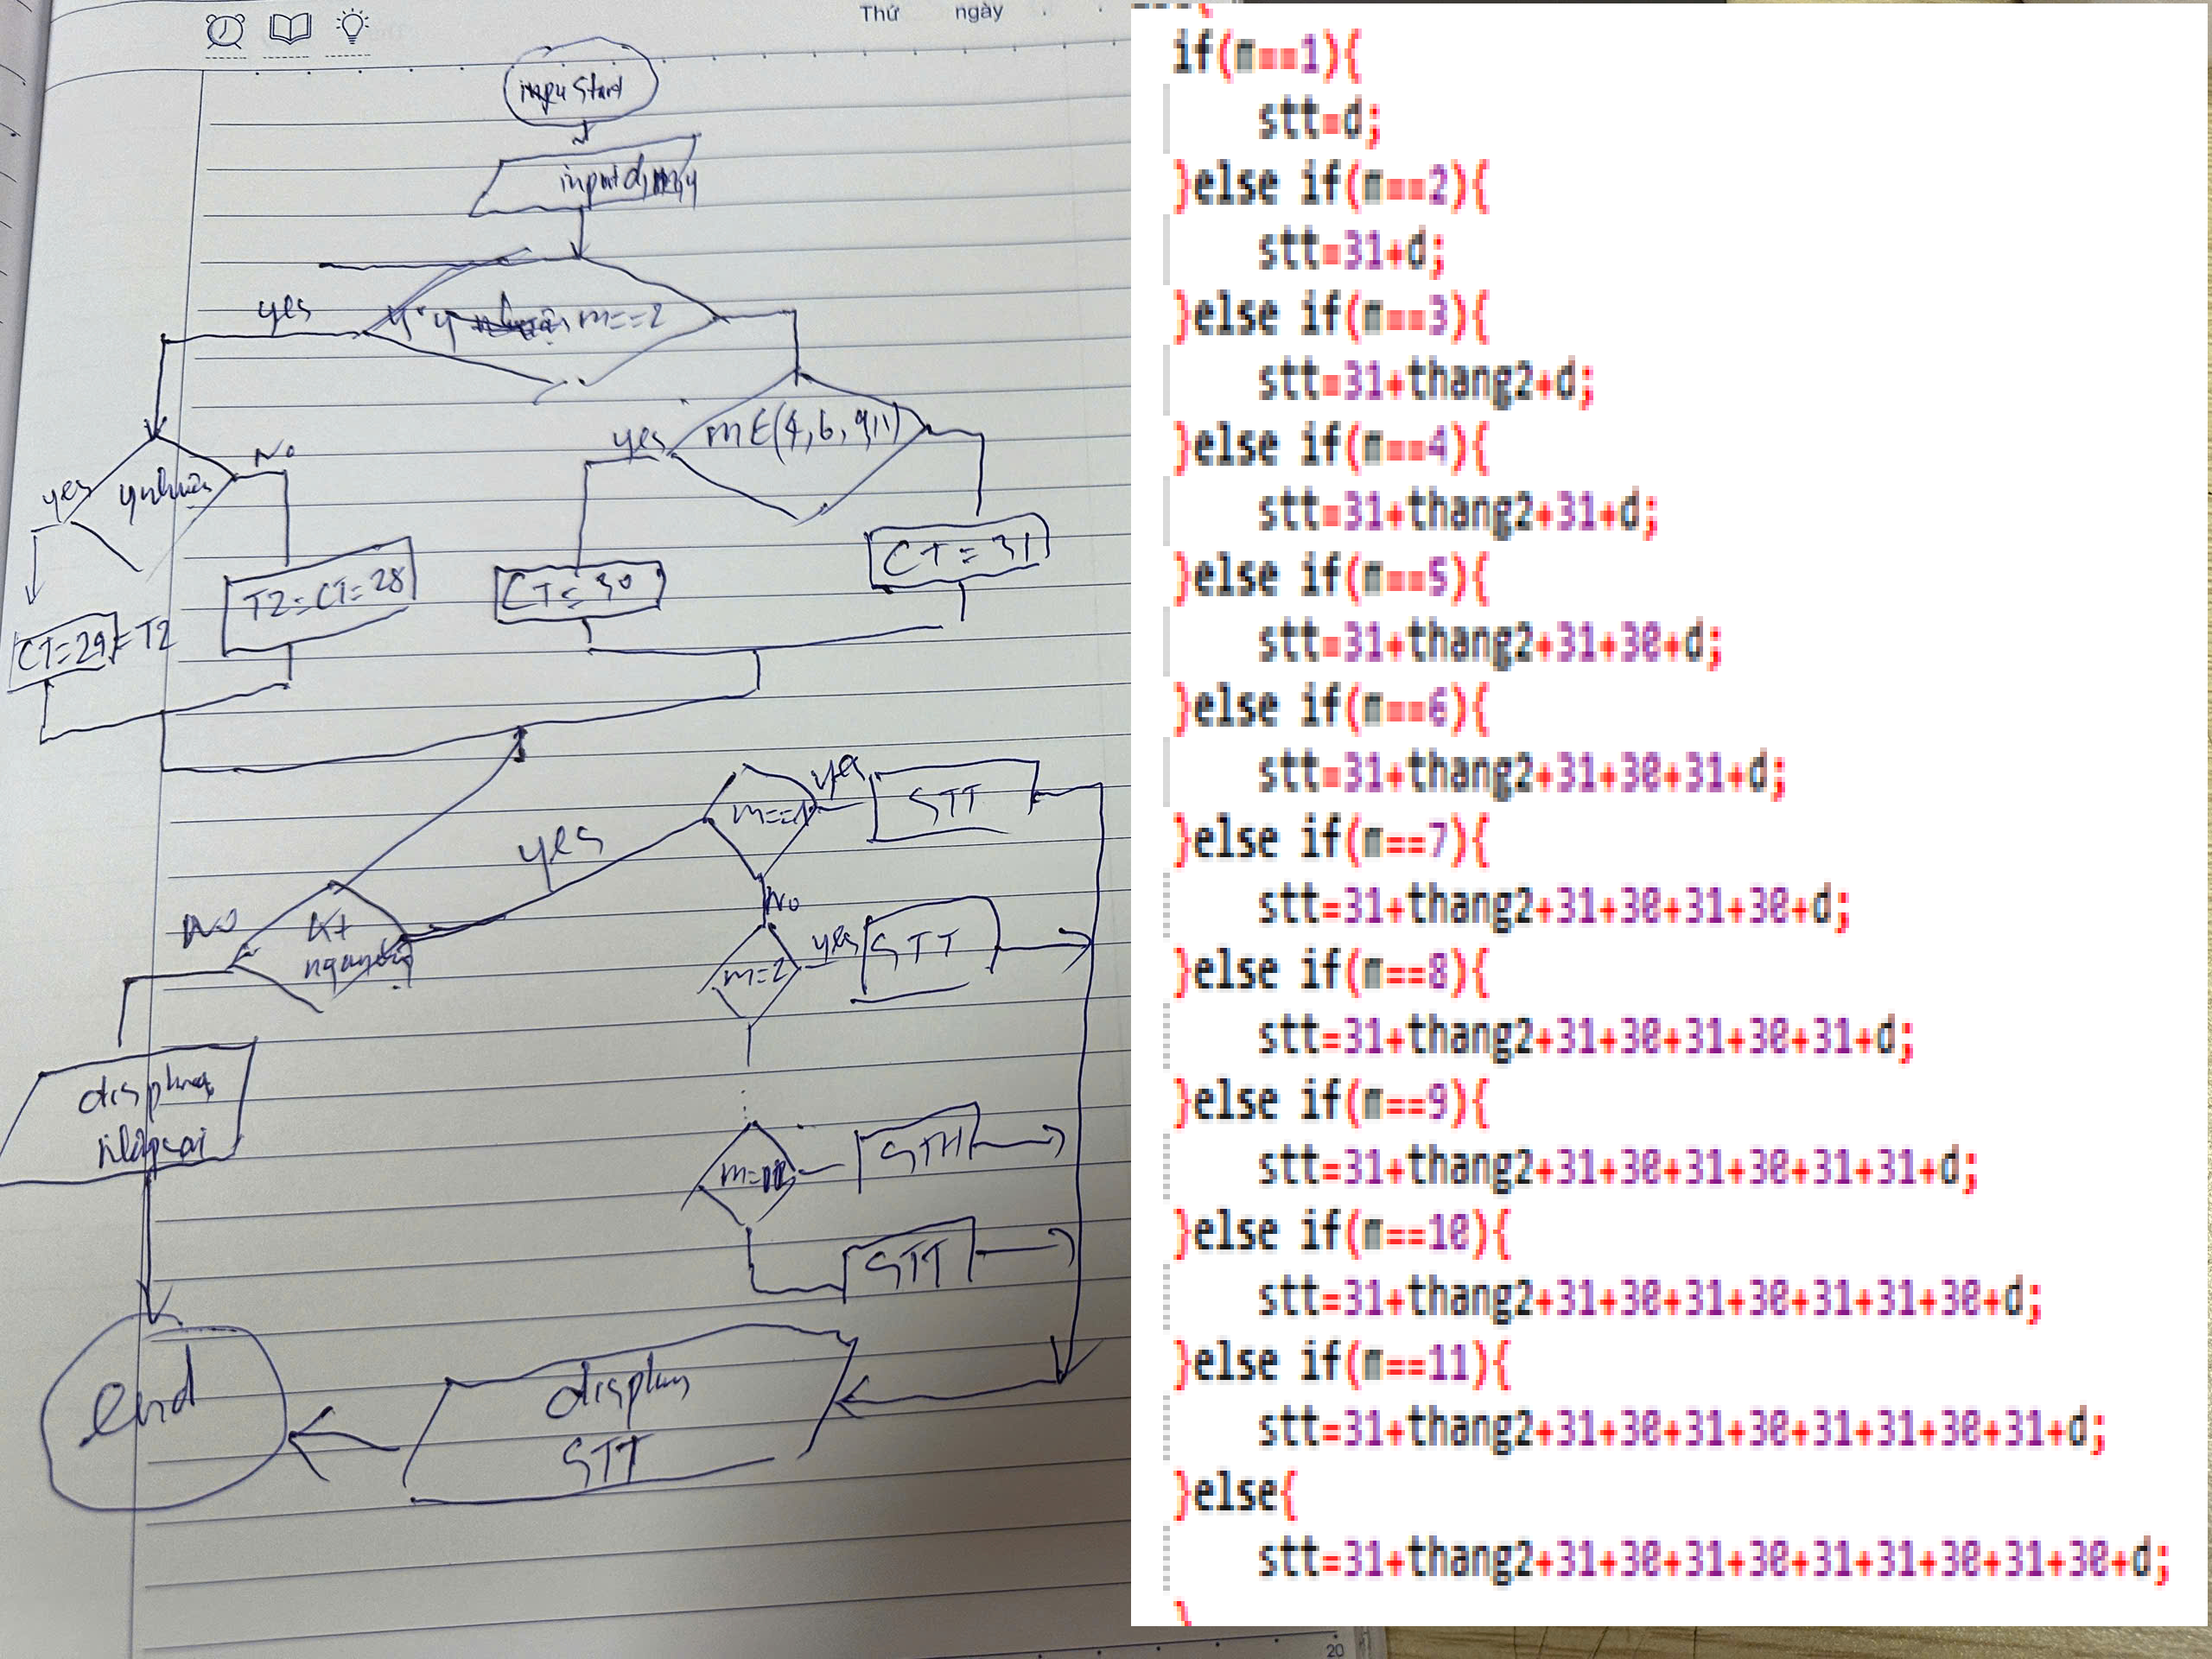 Thứ ngày
Start
input d, m, y
m==2
yes
yes
No
y nhuận
m∈(4,6,9,11)
yes
CT=31
T2=CT=28
CT=30
CT=29=T2
m==1
yes
STT
yes
No
Kt
No
m=2
yes
STT
display
m=11
STT
end
display
STT
20
if(m==1){
stt=d;
}else if(m==2){
stt=31+d;
}else if(m==3){
stt=31+thang2+d;
}else if(m==4){
stt=31+thang2+31+d;
}else if(m==5){
stt=31+thang2+31+30+d;
}else if(m==6){
stt=31+thang2+31+30+31+d;
}else if(m==7){
stt=31+thang2+31+30+31+30+d;
}else if(m==8){
stt=31+thang2+31+30+31+30+31+d;
}else if(m==9){
stt=31+thang2+31+30+31+30+31+31+d;
}else if(m==10){
stt=31+thang2+31+30+31+30+31+31+30+d;
}else if(m==11){
stt=31+thang2+31+30+31+30+31+31+30+31+d;
}else{
stt=31+thang2+31+30+31+30+31+31+30+31+30+d;
}